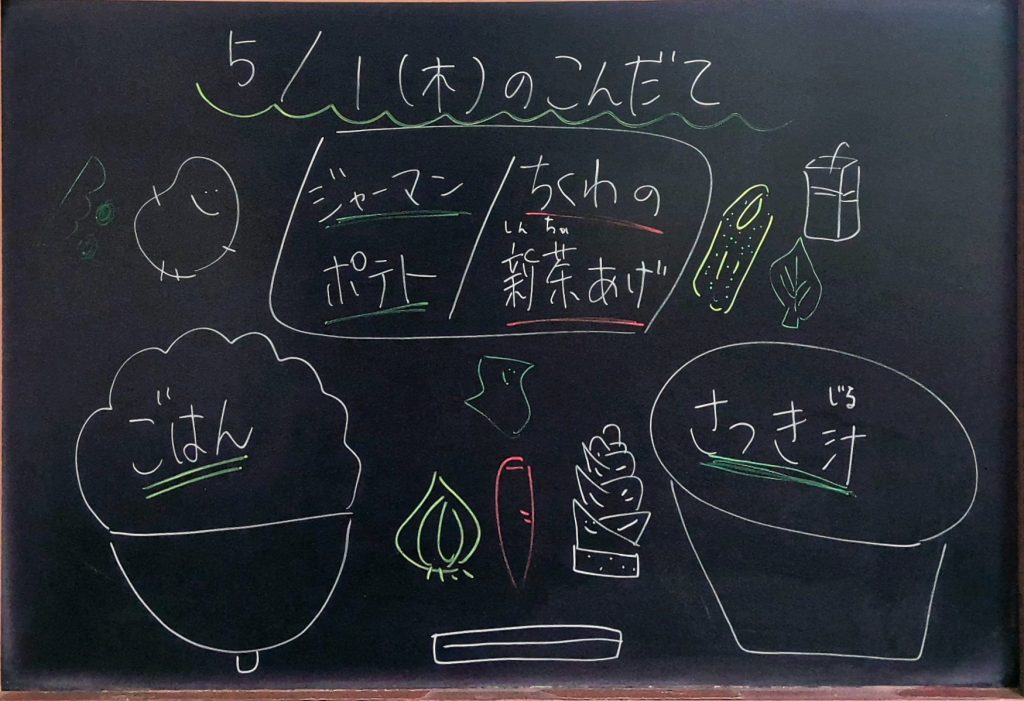 5/1(木)のこんだて
ジャーマン
ポテト
ちくわの
しん ちゃ
新茶あげ
ごはん
じる
さつき汁